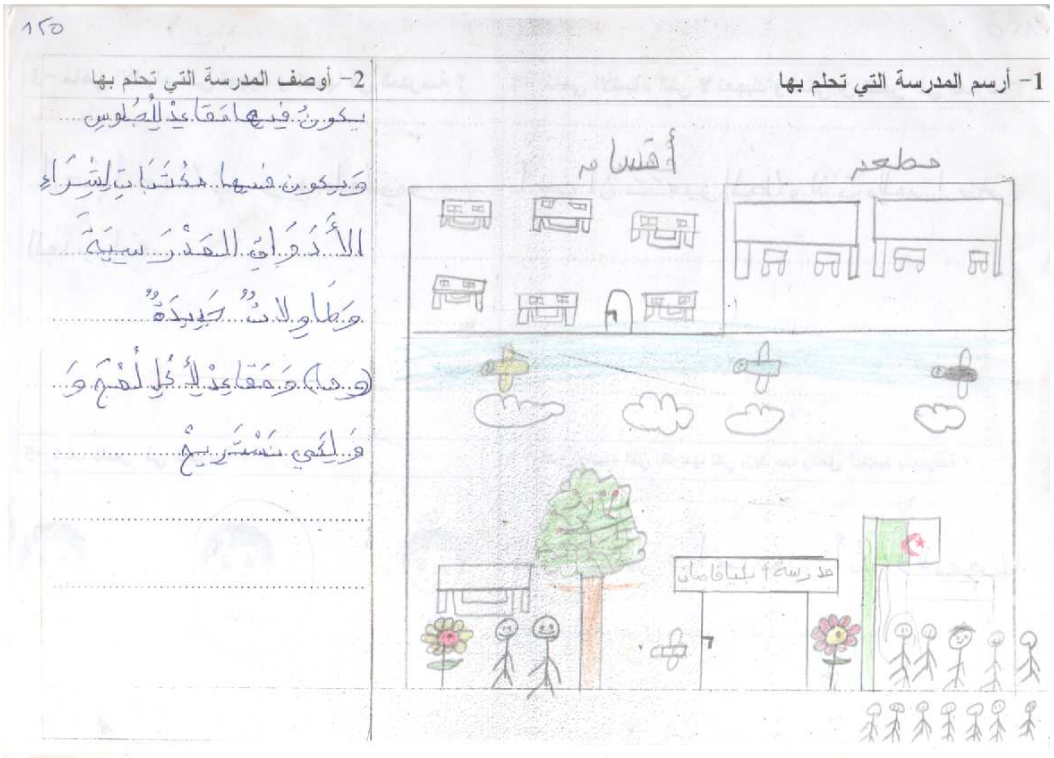 ١٥٠
1- أرسم المدرسة التي تحلم بها
مطعم
أقسام
مدرسة
2- أوصف المدرسة التي تحلم بها
يكونُ فيها مَقَاعِدْ للْجُلُوسِ
وَيكون فيها مكْتَبَاتِ لِشِرَاءِ
الأَدَوَاتِ المَدْرَسِيَةَ
وَطَاوِلاتٌ جَدِيدَةٌ
وَمَقَاعِدْ لِأَكْلِ وَ
وَلِكَي نَسْتَرِيحْ